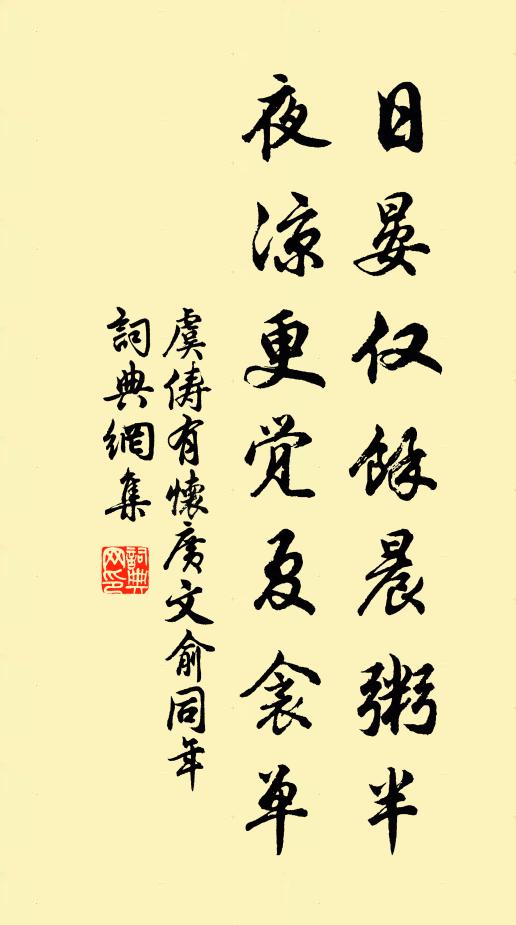 日晏仅餘晨粥半
夜涼更觉夏衾单
虞儔有懷廣文俞同年
詞典網集
詞典网印